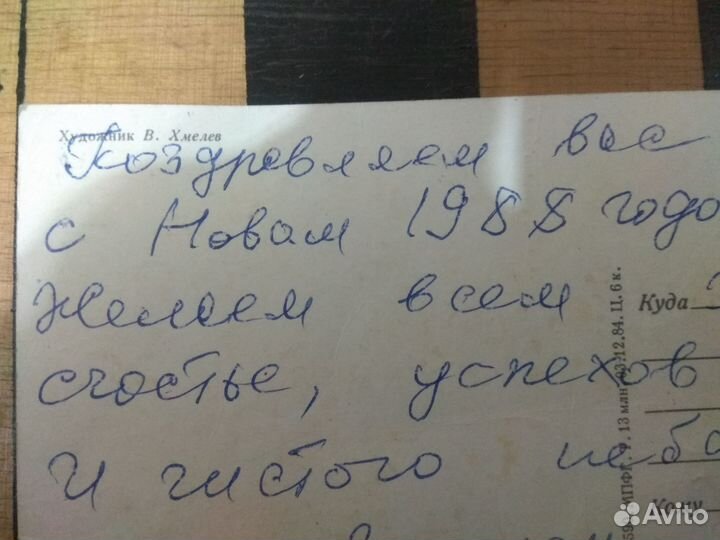 Художник В. Хмелев
Поздравляем вас
с Новам 1988 годо
Желаем всем
счастье, успехов
и чистого неба
Куда
Кому
13 млн 03.12.84. Ц. 6 к.
Avito